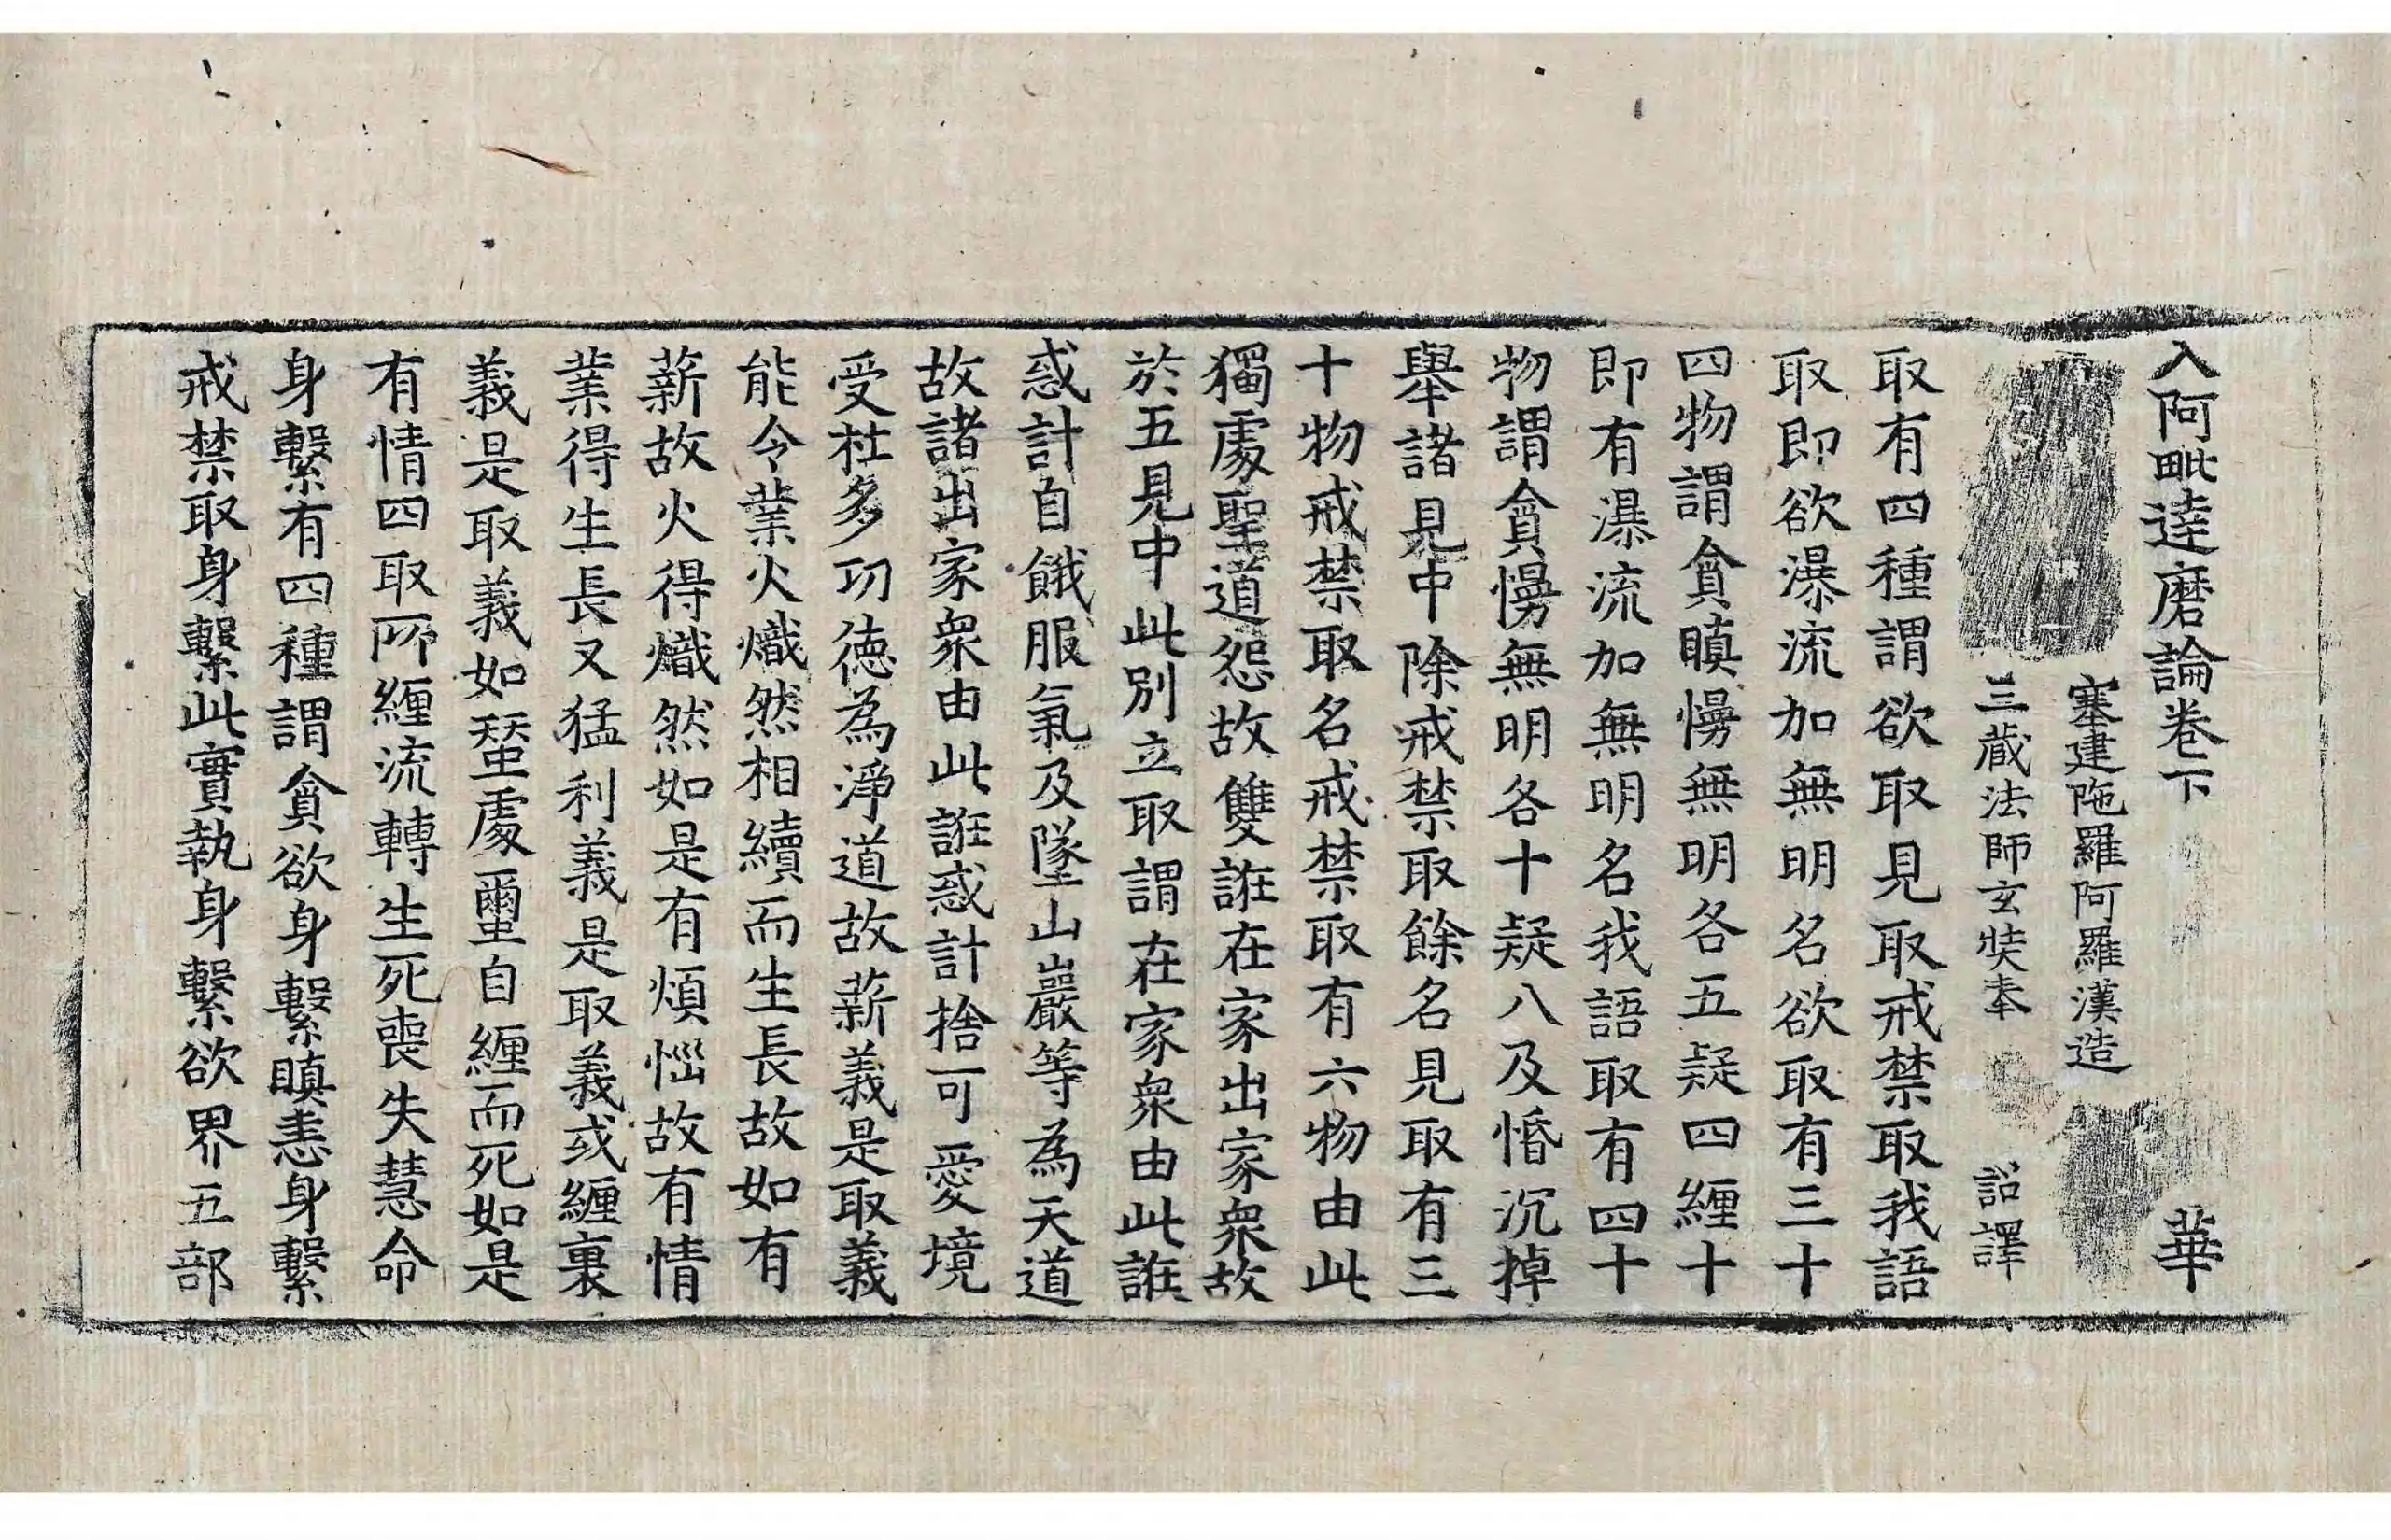 入阿毗達磨論卷下 華
塞建陁羅阿羅漢造
三藏法師玄奘奉 詔譯
取有四種謂欲取見取戒禁取我語
取即欲瀑流加無明名欲取有三十
四物謂貪瞋慢無明各五疑四纏十
即有瀑流加無明名我語取有四十
物謂貪慢無明各十疑八及惛沉掉
舉諸見中除戒禁取餘名見取有三
十物戒禁取名戒禁取有六物由此
獨處聖道怨故雙誑在家出家衆故
於五見中此別立取謂在家衆由此誑
惑計自餓服氣及墜山巖等為天道
故諸出家衆由此誑惑計捨可愛境
受杜多功德為淨道故薪義是取義
能令業火熾然相續而生長故如有
薪故火得熾然如是有煩惱故有情
業得生長又猛利義是取義或纏裹
義是取義如蠶處蠒自纏而死如是
有情四取所纏流轉生死喪失慧命
身繫有四種謂貪欲身繫瞋恚身繫
戒禁取身繫此實執身繫欲界五部